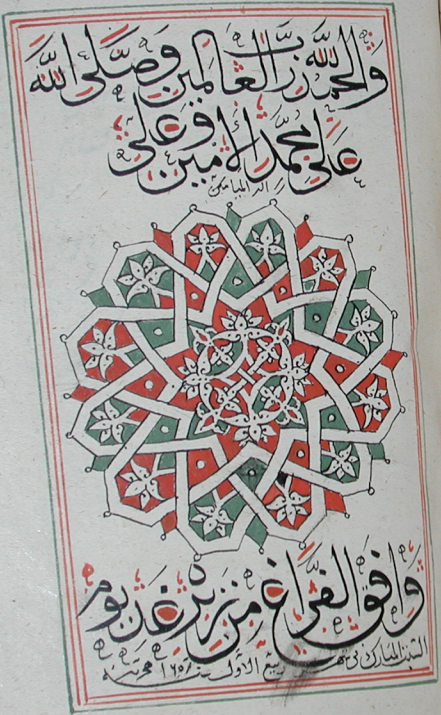 والحمد لله رب العالمين وصلى الله
على محمد الأمين وعلى
اله الميامين
وافق الفراغ من زبر غد يوم
السبت المبارك من شهر ربيع الأول سنة هجرية